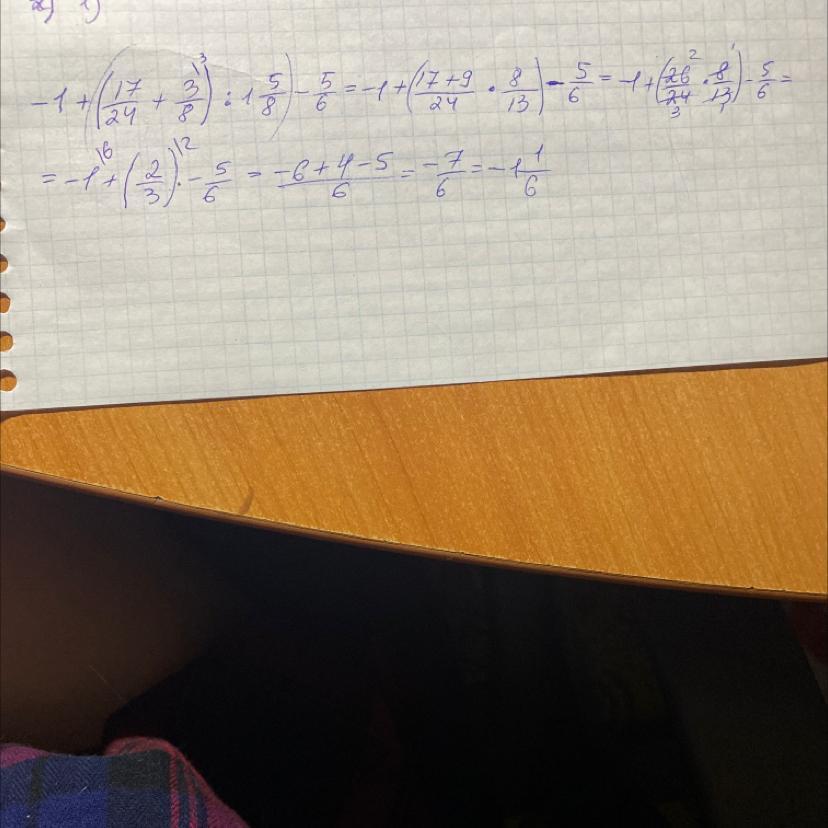 2) 1)
-1+((17/24 + 3/8\3) : 1 5/8) - 5/6 = -1+(17+9/24 · 8/13) - 5/6 = -1+(26 2/24 3 · 8 1/13 1) - 5/6 =
= -1\6 + (2/3)\2 · - 5/6 = -6+4-5/6 = -7/6 = -1 1/6